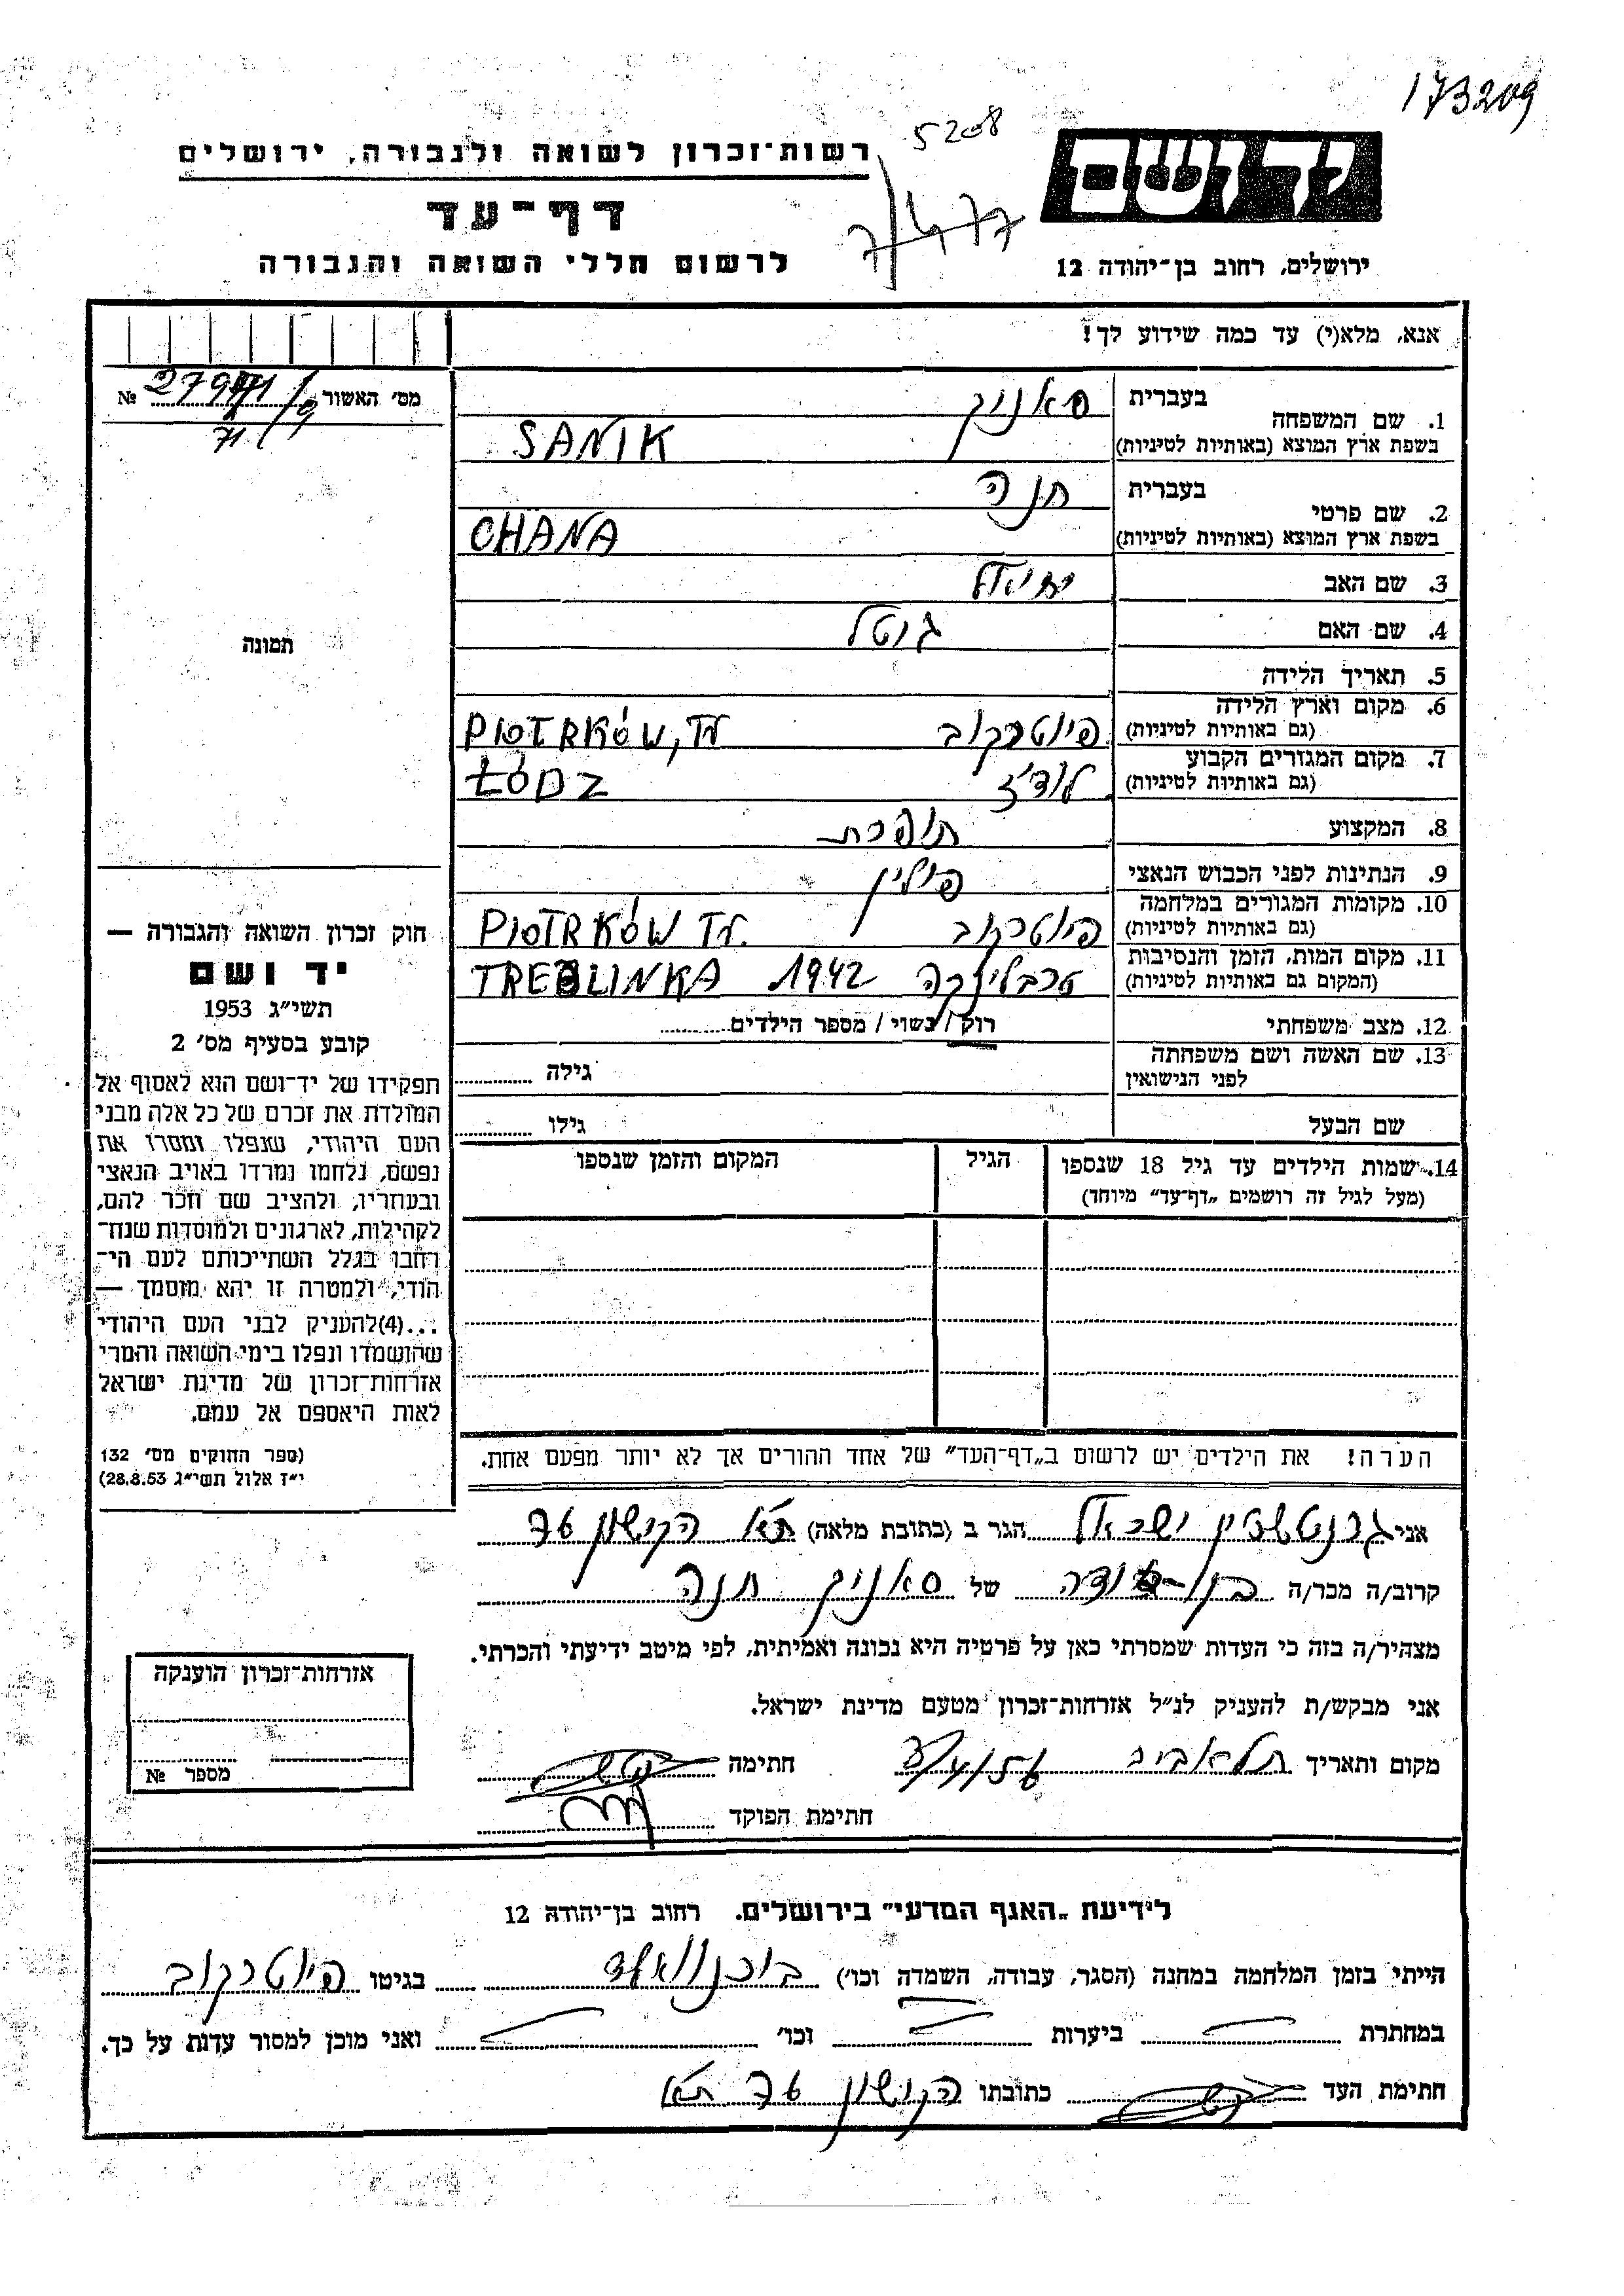 173209
5208
רשות־זכרון לשואה ולגבורה, ירושלים
יד ושם
דף־עד
לרשום חללי השואה והגבורה
ירושלים, רחוב בן־יהודה 12
אנא, מלא(י) עד כמה שידוע לך!
מס' האשור
№
1. שם המשפחה
בעברית סאניק
בשפת ארץ המוצא (באותיות לטיניות) SANIK
2. שם פרטי
בעברית חנה
בשפת ארץ המוצא (באותיות לטיניות) CHANA
3. שם האב יחיאל
4. שם האם גוטל
תמונה
5. תאריך הלידה
6. מקום וארץ הלידה
(גם באותיות לטיניות) פיוטרקוב PIOTRKÓW, TR
7. מקום המגורים הקבוע
(גם באותיות לטיניות) לודז' ŁÓDZ
8. המקצוע תופרת
9. הנתינות לפני הכבוש הנאצי פולין
10. מקומות המגורים במלחמה
(גם באותיות לטיניות) פיוטרקוב PIOTRKÓW TR.
11. מקום המות, הזמן והנסיבות
(המקום גם באותיות לטיניות) טרבלינקה 1942 TREBLINKA
12. מצב משפחתי רוק / נשוי / מספר הילדים
13. שם האשה ושם משפחתה
לפני הנישואין גילה
שם הבעל גילו
14. שמות הילדים עד גיל 18 שנספו הגיל המקום והזמן שנספו
(מעל לגיל זה רושמים „דף־עד" מיוחד)
חוק זכרון השואה והגבורה —
יד ושם
תשי"ג 1953
קובע בסעיף מס' 2
תפקידו של יד־ושם הוא לאסוף אל
המולדת את זכרם של כל אלה מבני
העם היהודי, שנפלו ומסרו את
נפשם, נלחמו ומרדו באויב הנאצי
ובעוזריו, ולהציב שם וזכר להם,
לקהילות, לארגונים ולמוסדות שנח־
רבו בגלל השתייכותם לעם הי־
הודי, ולמטרה זו יהא מוסמך —
...(4) להעניק לבני העם היהודי
שהושמדו ונפלו בימי השואה והמרי
אזרחות־זכרון של מדינת ישראל
לאות היאספם אל עמם.
(ספר החוקים מס' 132
י"ז אלול תשי"ג 28.8.53)
הערה! את הילדים יש לרשום ב„דף־העד" של אחד ההורים אך לא יותר מפעם אחת.
אני גרנטשטיין ישראל הגר ב (כתובת מלאה) ת"א הקישון 76
קרוב/ה מכר/ה בן-דודה של סאניק חנה
מצהיר/ה בזה כי העדות שמסרתי כאן על פרטיה היא נכונה ואמיתית, לפי מיטב ידיעתי והכרתי.
אני מבקש/ת להעניק לנ"ל אזרחות־זכרון מטעם מדינת ישראל.
מקום ותאריך תל אביב חתימה
חתימת הפוקד
אזרחות־זכרון הוענקה
מספר №
לידיעת „האגף המדעי" בירושלים, רחוב בן־יהודה 12
הייתי בזמן המלחמה במחנה (הסגר, עבודה, השמדה וכו') בוכנוואלד בגיטו פיוטרקוב
במחתרת — ביערות — וכו' — ואני מוכן למסור עדות על כך.
חתימת העד כתובתו הקישון 76 ת"א